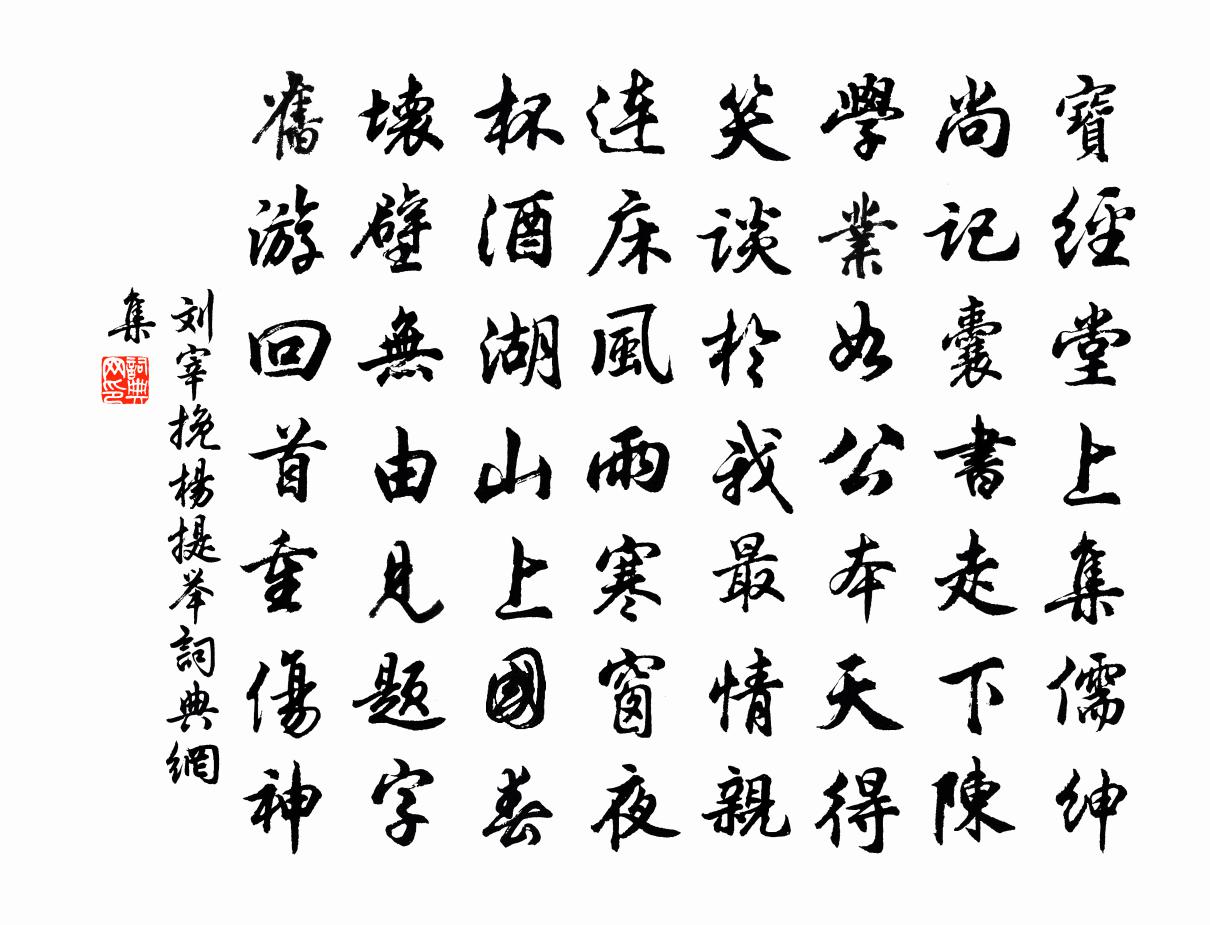 寶經堂上集儒紳
尚記囊書走下陳
學業如公本天得
笑談於我最情親
连床風雨寒窗夜
杯酒湖山上國春
壞壁無由見题字
舊游回首重傷神
刘宰挽楊提举詞典網
集
詞典網印